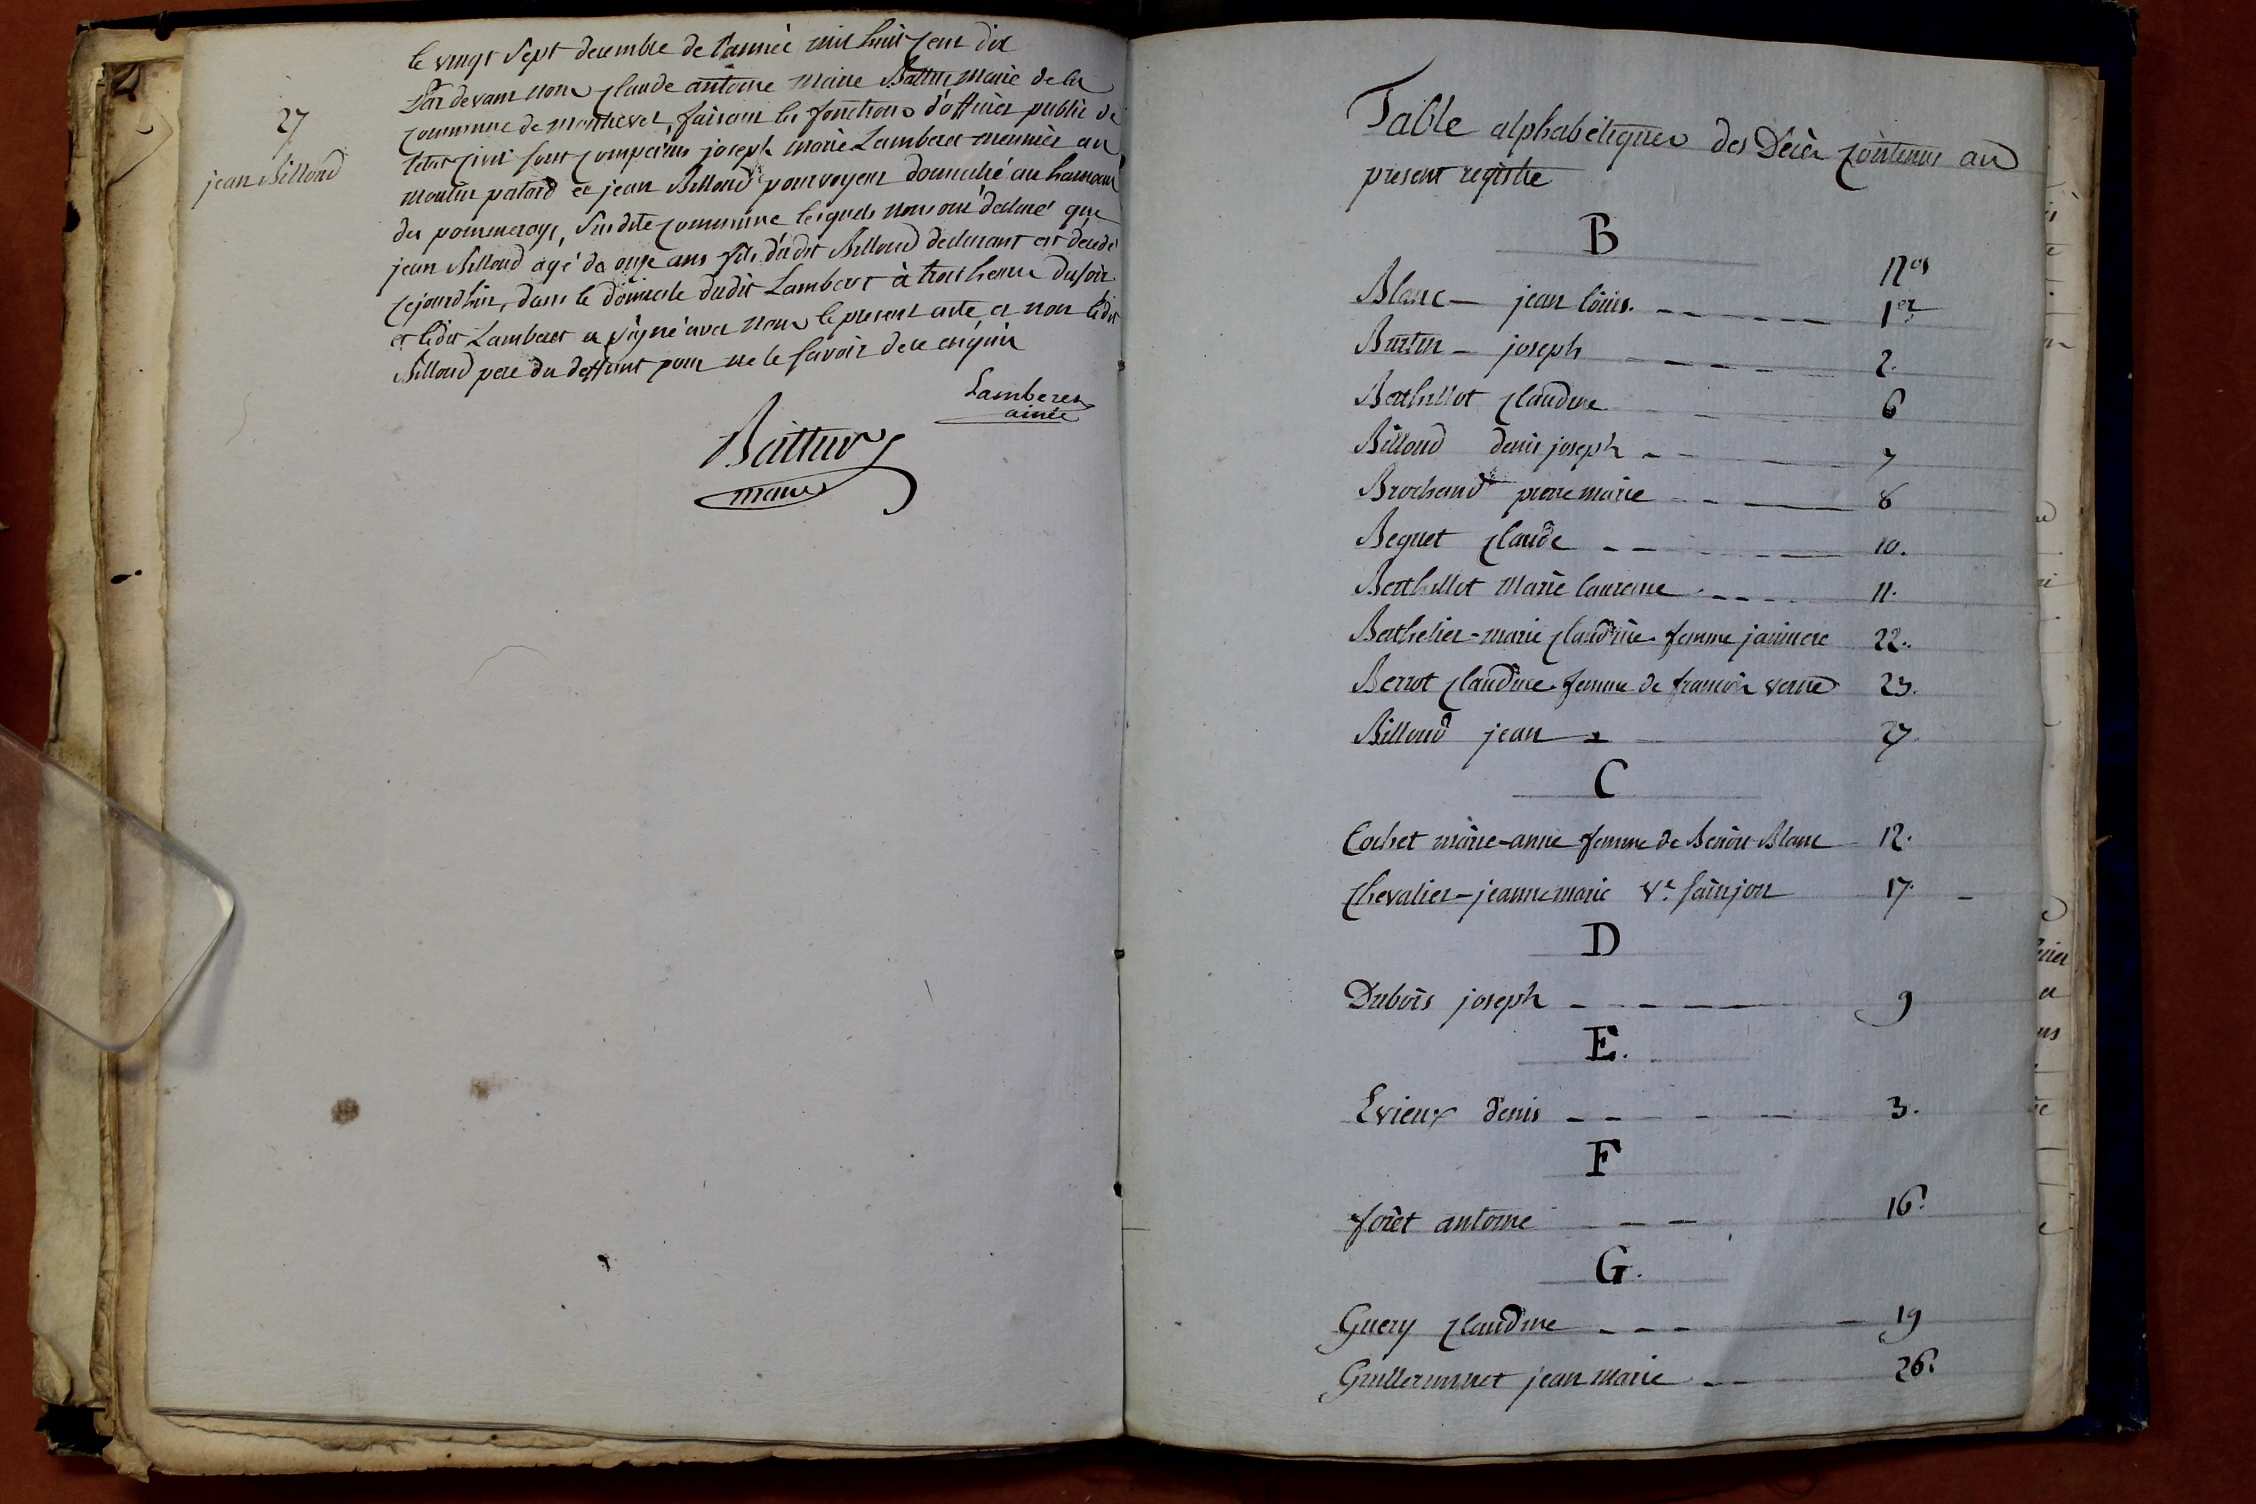 le vingt Sept decembre de l'année mil huit cent dix
Par devant nous claude antoine marie Battur maire de la
27
commune de montrevel, faisant les fonctions d'officier public de
jean Billoud
l'etat civil sont comparus joseph marie Lamberet meunier au
moulin patard et jean Billoud pourvoyeur domicilié au hameau
des pommeroys, Susdite commune lesquels nous ont declaré que
jean Billoud agé de onze ans fils dudit Billoud declarant est decedé
cejourdhui, dans le domicile dudit Lamberet à trois heures du soir
et ledit Lamberet a signé avec nous le present acte et non ledit
Billoud pere du deffunt pour ne le savoir de ce enquis
Lamberet
ainée
Battur
maire
Table alphabétique des Décès contenus au
present registre
B
Nos
Blanc - jean louis. 1er
Burtin - joseph 2.
Berthillot claudine 6
Billoud denis joseph 7
Brochand pierre marie 8
Beguet claude 10.
Berthillot Marie laurence 11.
Berthelier - marie claudine femme janinere 22.
Berrot claudine femme de françois verne 23.
Billoud jean 27
C
Cochet marie-anne femme de Benoit Blanc 12.
Chevalier - jeanne marie Ve. sainjon 17.
D
Dubois joseph 9
E.
Evieux denis 3.
F
forêt antoine 16.
G.
Guery claudine 19
Guillerminet jean marie 26.